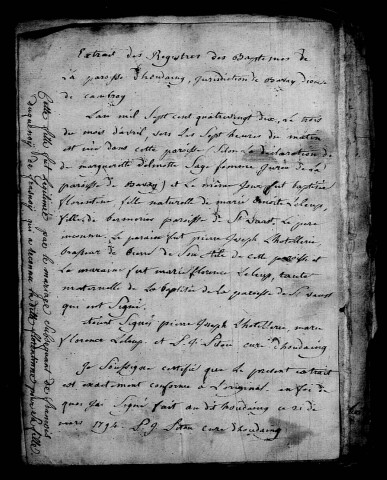 Extrait des Registres des Baptemes de
La paroisse d'houdaing, jurisdiction de Bavay diocese
de cambray
L'an mil Sept cent quatrevingt dix, le trois
du mois d'avril, vers les Sept heures du matin
est née dans cette paroisse Selon la déclaration
de marguerite delmotte Sage femme jurée de la
paroisse de Bavay) et le même jour fut baptisée
florentine fille naturelle de marie Leloup,
fille de paroisse de St Vaast. Le pere
inconnu. Le parain fut pierre Joseph Lhotellerie
brasseur de de Son Stile de cette paroisse et
La maraine fut marie florence Leloup, tante
maternelle de La baptisée de la paroisse de St vaast
qui ont Signé.
étoient Signés pierre Joseph Lhotellerie, marie
florence Leloup et curé d'houdaing
Je Soussigné certifie que le present extrait
est exactement conforme à L'original, en foi de
quoi j'ai Signé fait au dit houdaing ce 21 de
mars 1794. curé d'houdaing
Cette fille fut légitimée par le mariage subséquent de françois
qui a reconnu ladite florentine pour Sa fille